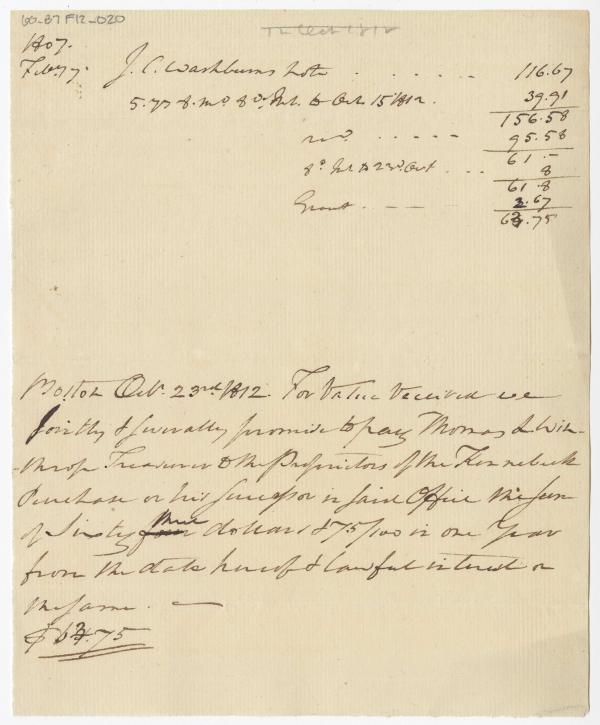 60-B7 F12-D20
1807.
Feby 7. J. C. Washburns Note . . . . . . - - 116.67
5. ys 8. mo 8 ds Int. to Oct. 15 1812. 39.91
156.58
. . . . - - 95.58
61 . -
8 ds Int. to 23d. Oct . . . 8
61.8
Grant . - - 2.67
63.75
Boston Oct. 23rd 1812. For Value received we
jointly & severally promise to pay Thomas L Win-
-throp Treasurer to the Proprietors of the Kennebeck
Purchase or his successor in said Office the sum
of Sixty three dollars & 75/100 in one Year
from the date hereof & lawful interest on
the same. —
$63.75